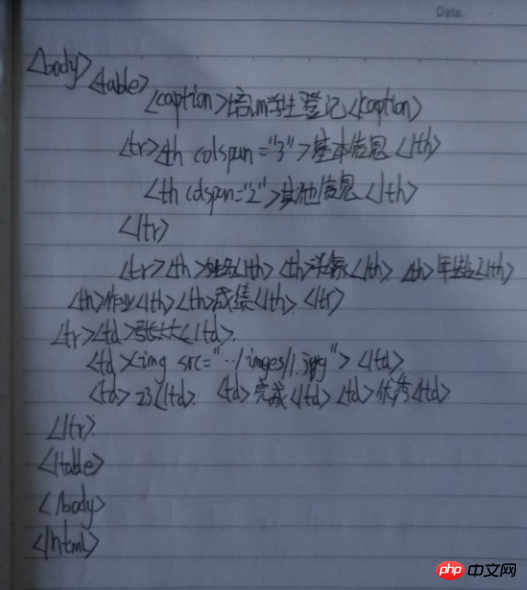 Date.
<body><table>
<caption>培训学生登记<caption>
<tr><th colspan="3">基本信息</th>
<th colspan="2">其他信息</th>
</tr>
<tr><th>姓名</th><th>头像</th><th>年龄</th>
<th>作业</th><th>成绩</th></tr>
<tr><td>张大大</td>
<td><img src="../imges/1.jpg"></td>
<td>23</td><td>完成</td><td>优秀<td>
</tr>
</table>
</body>
</html>
php中文网